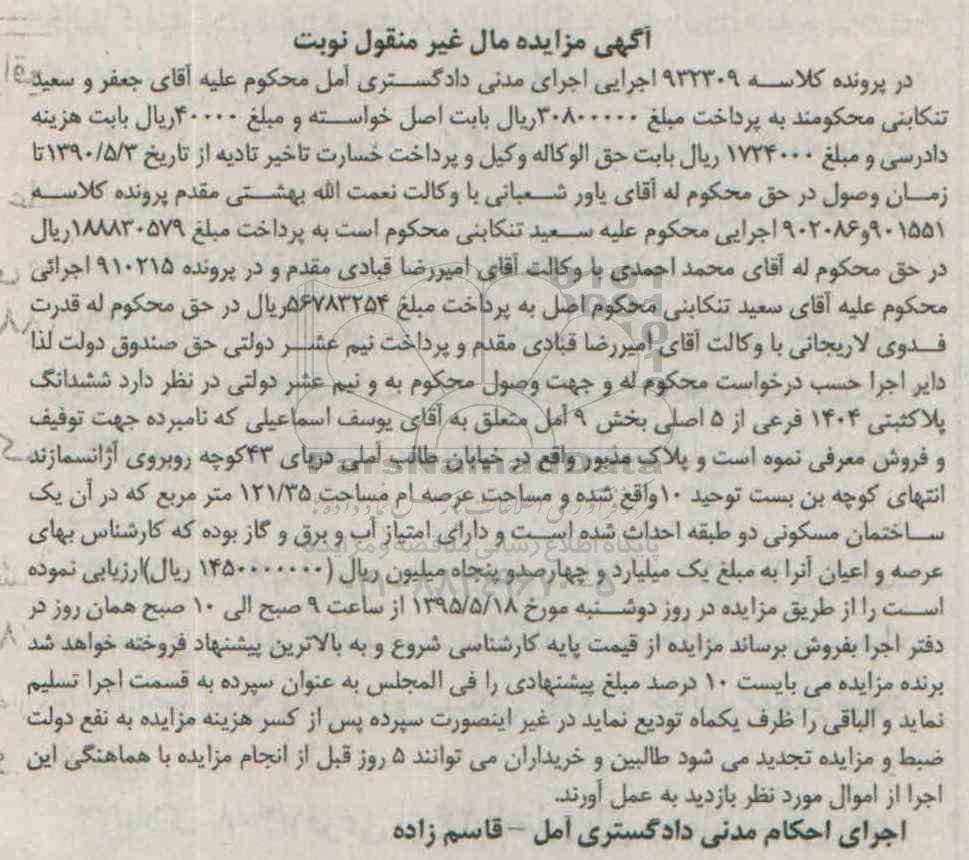 آگهی مزایده مال غیر منقول نوبت
در پرونده کلاسه ۹۳۲۳۰۹ اجرایی اجرای مدنی دادگستری آمل محکوم علیه آقای جعفر و سعید
تنکابنی محکومند به پرداخت مبلغ ۳۰۸۰۰۰۰۰ریال بابت اصل خواسته و مبلغ ۴۰۰۰۰ریال بابت هزینه
دادرسی و مبلغ ۱۷۲۴۰۰۰ ریال بابت حق الوکاله وکیل و پرداخت خسارت تاخیر تادیه از تاریخ ۱۳۹۰/۵/۳تا
زمان وصول در حق محکوم له آقای یاور شعبانی با وکالت نعمت الله بهشتی مقدم پرونده کلاسه
۹۰۱۵۵۱و۹۰۲۰۸۶ اجرایی محکوم علیه سعید تنکابنی محکوم است به پرداخت مبلغ ۱۸۸۸۳۰۵۷۹ریال
در حق محکوم له آقای محمد احمدی با وکالت آقای امیررضا قبادی مقدم و در پرونده ۹۱۰۲۱۵ اجرائی
محکوم علیه آقای سعید تنکابنی محکوم اصل به پرداخت مبلغ ۵۶۷۸۳۲۵۴ریال در حق محکوم له قدرت
فدوی لاریجانی با وکالت آقای امیررضا قبادی مقدم و پرداخت نیم عشر دولتی حق صندوق دولت لذا
دایر اجرا حسب درخواست محکوم له و جهت وصول محکوم به و نیم عشر دولتی در نظر دارد ششدانگ
پلاکثبتی ۱۴۰۴ فرعی از ۵ اصلی بخش ۹ آمل متعلق به آقای یوسف اسماعیلی که نامبرده جهت توفیف
و فروش معرفی نموه است و پلاک مذبور واقع در خیابان طالب آملی دریای ۴۳کوچه روبروی آژانسمازند
انتهای کوچه بن بست توحید ۱۰واقع شده و مساحت عرصه ام مساحت ۱۲۱/۳۵ متر مربع که در آن یک
ساختمان مسکونی دو طبقه احداث شده است و دارای امتیاز آب و برق و گاز بوده که کارشناس بهای
عرصه و اعیان آنرا به مبلغ یک میلیارد و چهارصدو پنجاه میلیون ریال (۱۴۵۰۰۰۰۰۰۰ ریال)ارزیابی نموده
است را از طریق مزایده در روز دوشنبه مورخ ۱۳۹۵/۵/۱۸ از ساعت ۹ صبح الی ۱۰ صبح همان روز در
دفتر اجرا بفروش برساند مزایده از قیمت پایه کارشناسی شروع و به بالاترین پیشنهاد فروخته خواهد شد
برنده مزایده می بایست ۱۰ درصد مبلغ پیشنهادی را فی المجلس به عنوان سپرده به قسمت اجرا تسلیم
نماید و الباقی را ظرف یکماه تودیع نماید در غیر اینصورت سپرده پس از کسر هزینه مزایده به نفع دولت
ضبط و مزایده تجدید می شود طالبین و خریداران می توانند ۵ روز قبل از انجام مزایده با هماهنگی این
اجرا از اموال مورد نظر بازدید به عمل آورند.
اجرای احکام مدنی دادگستری آمل – قاسم زاده